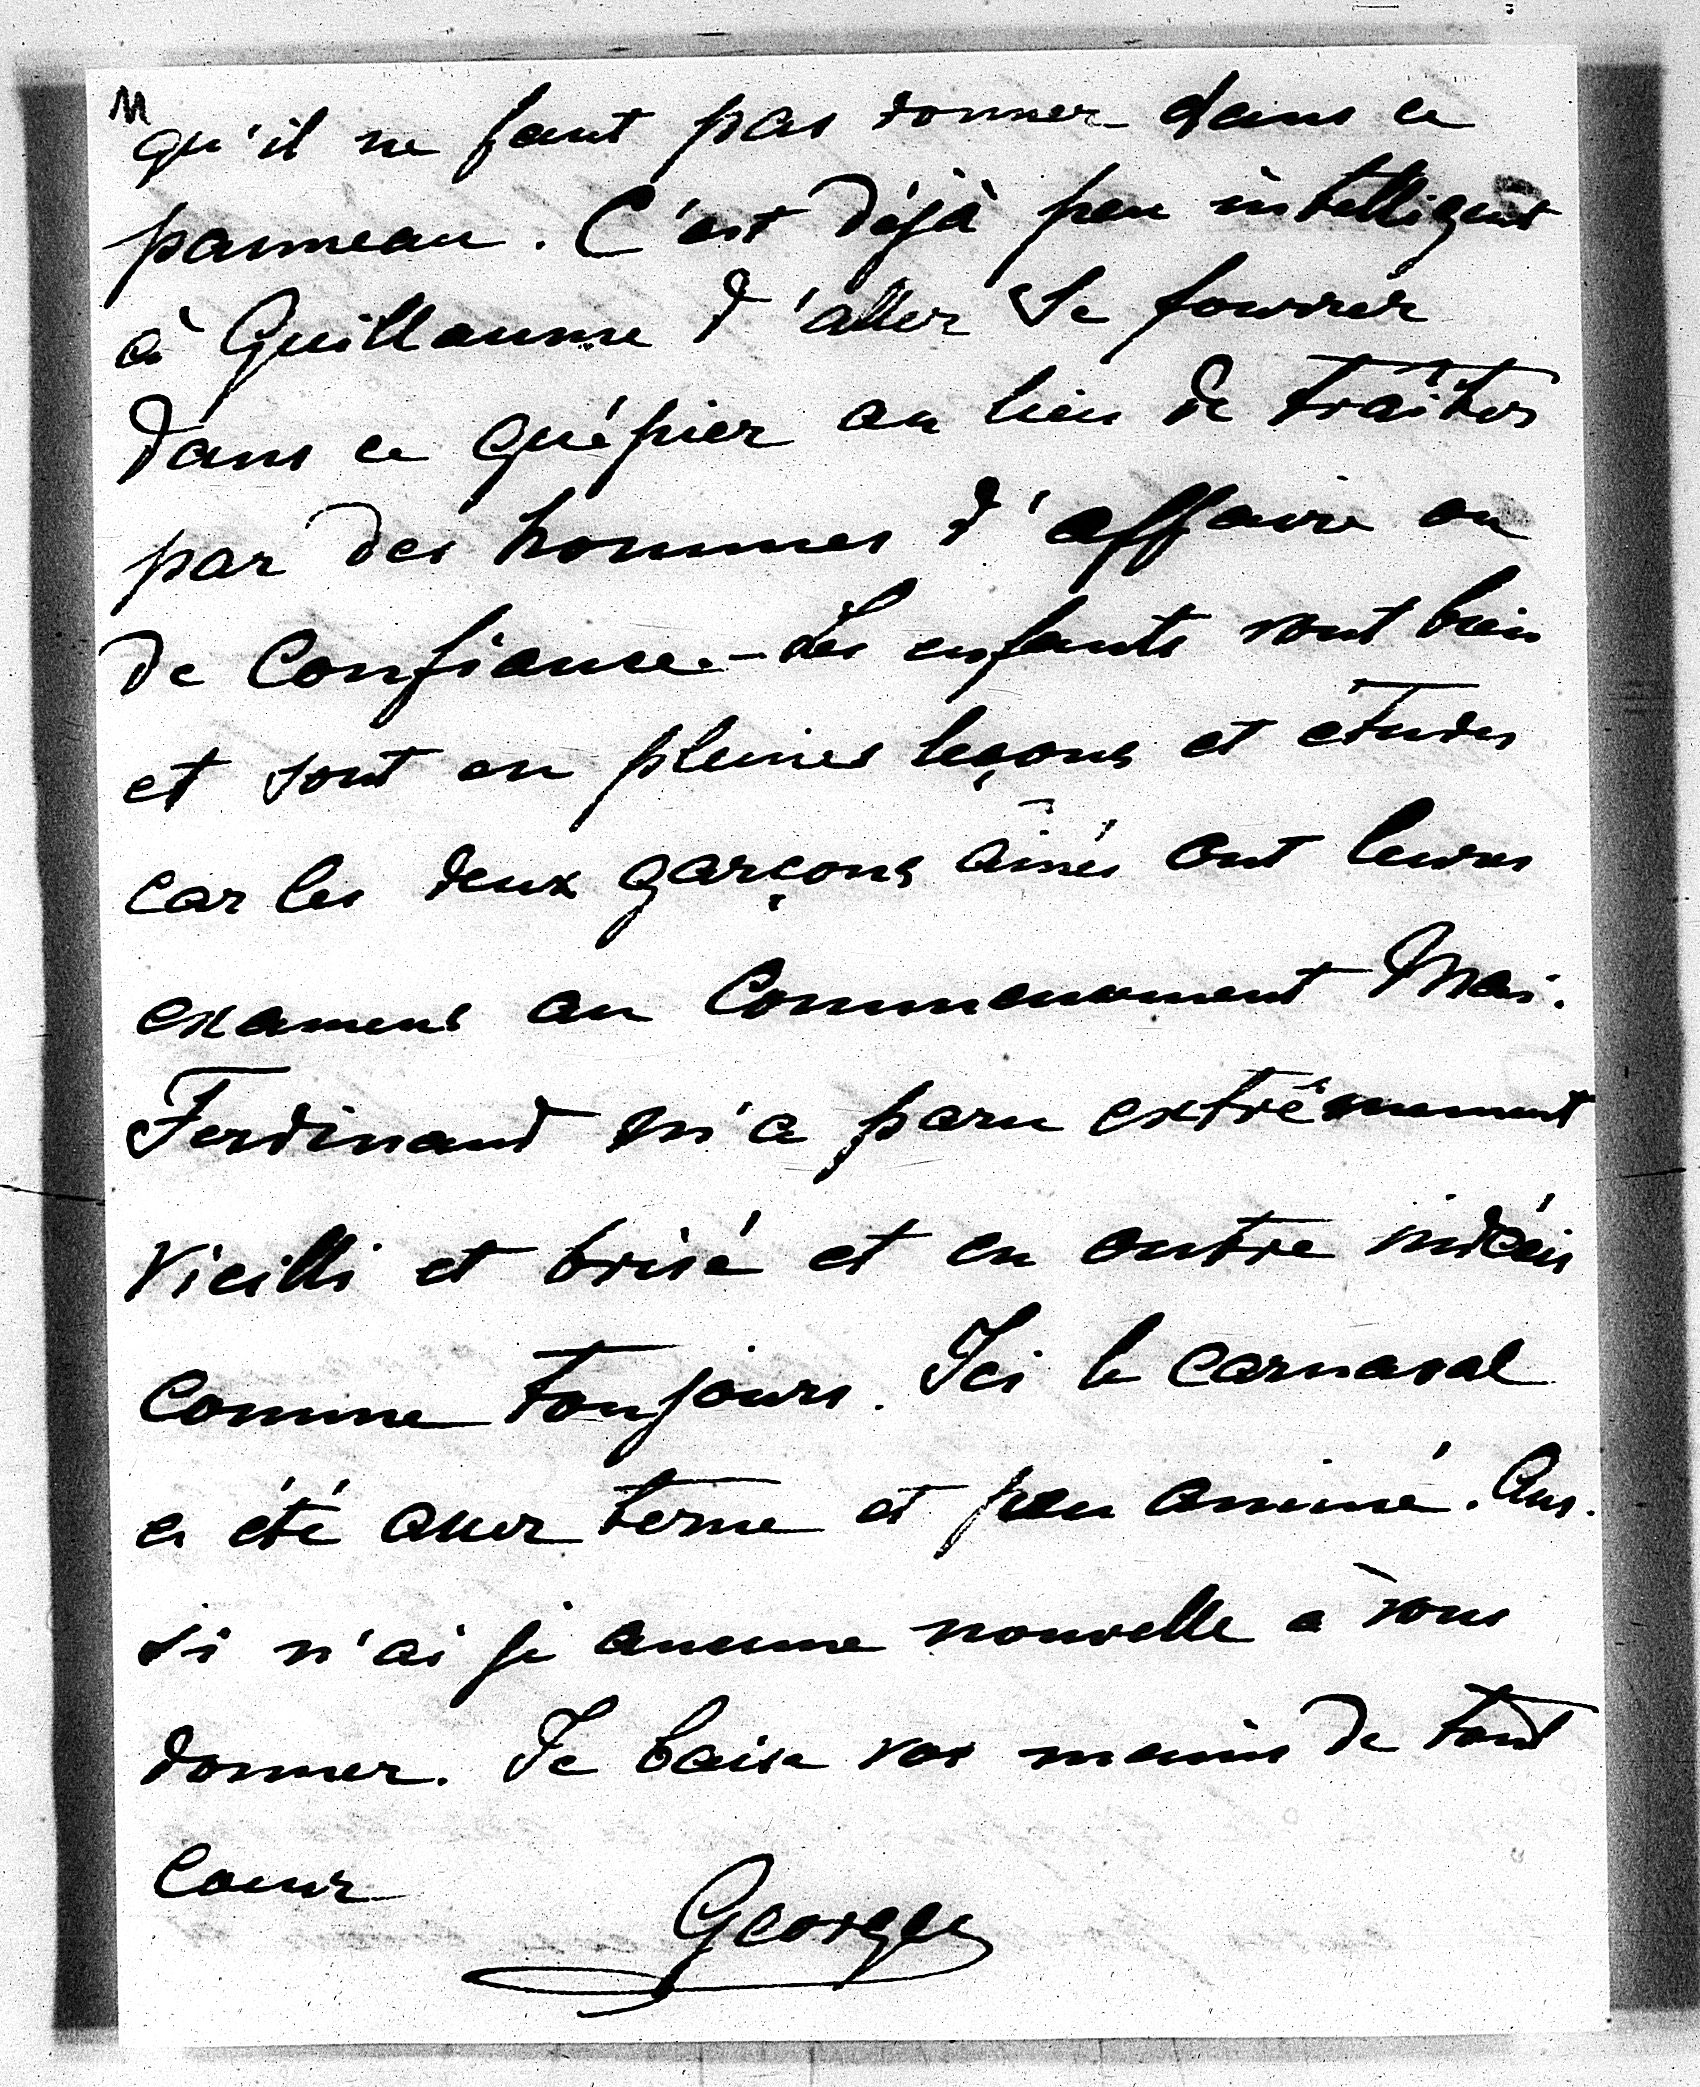 M
qu'il ne faut pas donner dans ce
panneau. C'est déjà peu intelligent
à Guillaume d'aller se fourrer
dans ce guépier au lieu de traiter
par des hommes d'affaire ou
de confiance. - Les enfants vont bien
et sont en pleines leçons et études
car les deux garçons ainés ont leurs
examens au commencement Mai.
Ferdinand m'a paru extrêmement
vieilli et brisé et en outre indécis
comme toujours. Ici le carnaval
a été assez terne et peu animé. Aus-
si n'ai je aucune nouvelle à vous
donner. Je baise vos mains de tout
coeur
Georges